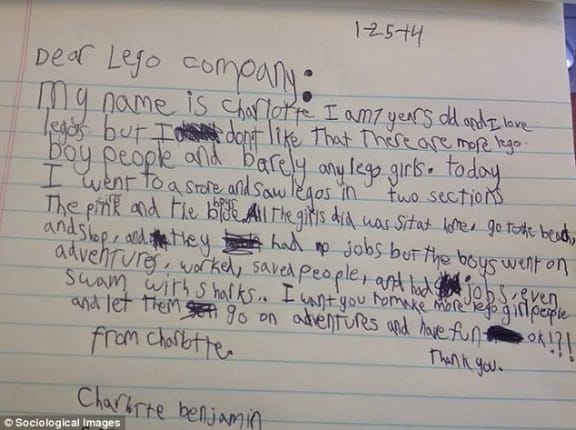 1-25-14
Dear Lego company:
My name is Charlotte I am 7 years old and I love
legos but I don't like that there are more lego
boy people and barely any lego girls. today
I went to a store and saw legos in two sections
The pink and the blue boys. All the girls did was sit at home, go to the beach,
and shop, and they had no jobs but the boys went on
adventures, worked, saved people, and had jobs, even
swam with sharks.. I want you to make more lego girl people
and let them go on adventures and have fun ok!?!
from Charlotte. Thank you.
Charlotte benjamin
© Sociological Images